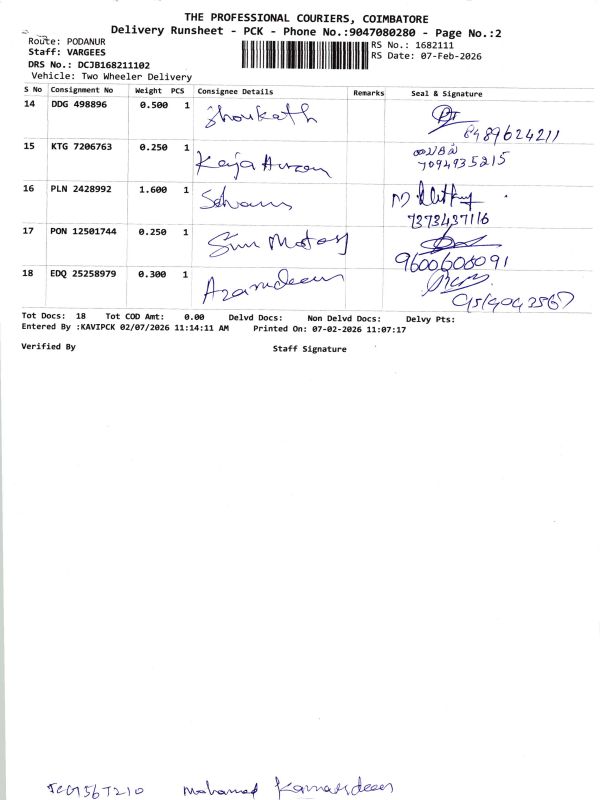 THE PROFESSIONAL COURIERS, COIMBATORE
Delivery Runsheet - PCK - Phone No.:9047080280 - Page No.:2
Route: PODANUR
Staff: VARGEES
DRS No.: DCJB168211102
Vehicle: Two Wheeler Delivery
RS No.: 1682111
RS Date: 07-Feb-2026
S No Consignment No Weight PCS Consignee Details Remarks Seal & Signature
14 DDG 498896 0.500 1 Jhoukath 8489624211
15 KTG 7206763 0.250 1 7094935215
16 PLN 2428992 1.600 1 7373437116
17 PON 12501744 0.250 1 Sun Motors 9600606091
18 EDQ 25258979 0.300 1 Azarudeen
Tot Docs: 18 Tot COD Amt: 0.00 Delvd Docs: Non Delvd Docs: Delvy Pts:
Entered By :KAVIPCK 02/07/2026 11:14:11 AM Printed On: 07-02-2026 11:07:17
Verified By Staff Signature
Mohamed